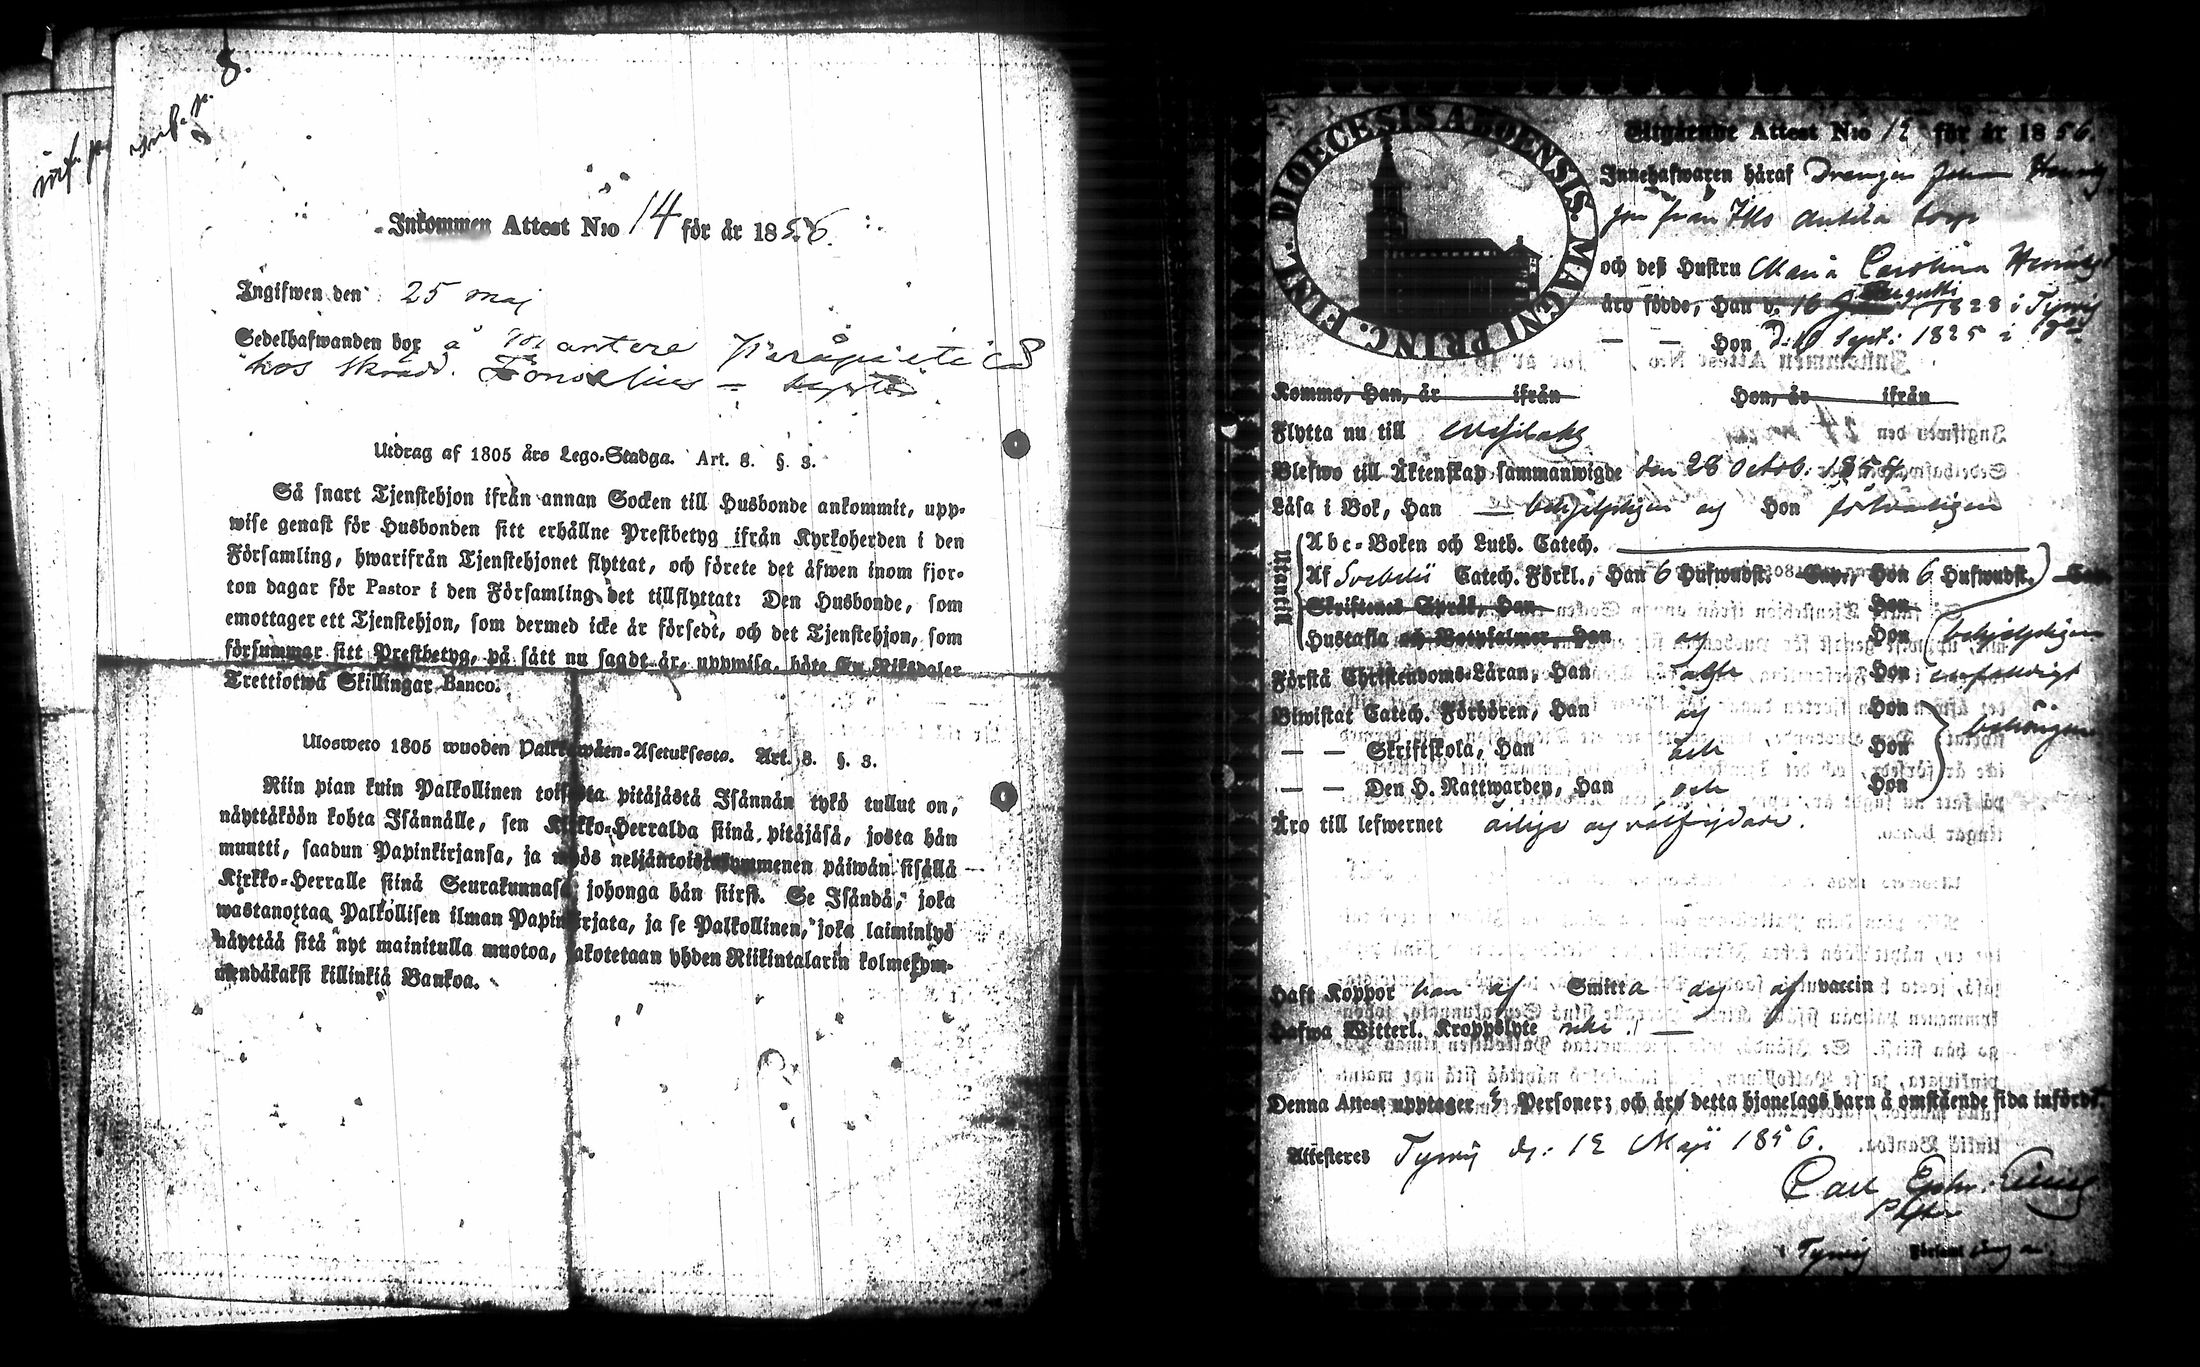 8.
Inkommen Attest N:o 14 för år 1856.
Ingifwen den 25 maj
Sedelhafwanden bor å
hos Skrädd.
Utdrag af 1805 års Lego-Stadga. Art. 8. §. 3.
Så snart Tjenstehjon ifrån annan Socken till Husbonde ankommit, upp-
wise genast för Husbonden sitt erhållne Prestbetyg ifrån Kyrkoherden i den
Församling, hwarifrån Tjenstehjonet flyttat, och förete det äfwen inom fjor-
ton dagar för Pastor i den Församling det tillflyttat: Den Husbonde, som
emottager ett Tjenstehjon, som dermed icke är försedt, och det Tjenstehjon, som
försummar sitt Prestbetyg, på sätt nu sagdt är, uppwisa, böte En Riksdaler
Trettiotwå Skillingar Banco.
Ulosweto 1805 wuoden Palkkawäen-Asetuksesta. Art. 8. §. 3.
Niin pian kuin Palkollinen toisesta pitäjästä Isännän tykö tullut on,
näyttäköön kohta Isännälle, sen Kirkko-Herralda siinä pitäjäsä, josta hän
muutti, saadun Papinkirjansa, ja myös neljäntoistakymmenen päiwän sisällä
Kirkko-Herralle siinä Seurakunnasa johonga hän siirst. Se Isändä, joka
wastanottaa Palkollisen ilman Papinkirjata, ja se Palkollinen, joka laiminlyö
näyttää sitä nyt mainitulla muotoa, sakotetaan yhden Riikintalarin kolmekym-
mendäkaksi killinkiä Bankoa.
FINL. DIOECESIS ABOENSIS. MAGNI PRINC.
Utgående Attest N:o 12 för år 1856.
Innehafwaren häraf Drengen Johan Henrik
från torp
och deß Hustru Maria Carolina
äro födde, Han d. 16 Augusti 1828 i Tyrvis
— — Hon d. 10 Sept: 1825 i
Komme, Han, år ifrån Hon, år ifrån
Flytta nu till
Blefwo till Äktenskap sammanwigde den 28 Octob. 1854
Läsa i Bok, Han — behjelpligen och Hon försvarligen
Utantill
Abc-Boken och Luth. Catech.
Af Svebelii Catech. Förkl., Han 6 Hufwudst. Hon 6 Hufwudst.
Skriftenes Språk, Han Hon
Hustafla och Botpsalmer, Han och Hon behjelpligen
Förstå Christendoms-Läran, Han och Hon enfaldigt
Biwistat Catech. Förhören, Han och Hon
— — Skriftskola, Han och Hon behörigen
— — Den H. Nattwarden, Han och Hon
Äro till lefwernet ärlige och välfrejdade.
Haft Koppor han af Smitta och af vaccin
Hafwa Witterl. Kroppslyte icke. —
Denna Attest upptager Personer; och äro detta hjonelags barn å omstående sida införde.
Attesteres Tyrvis d. 12 Maji 1856.
Carl
Pastor
i Tyrvis Församlingar.